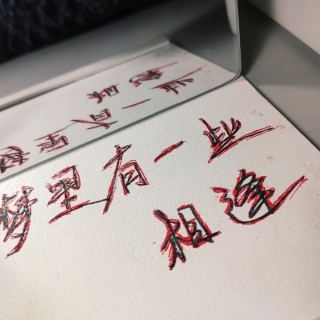 梦里有一些
相逢